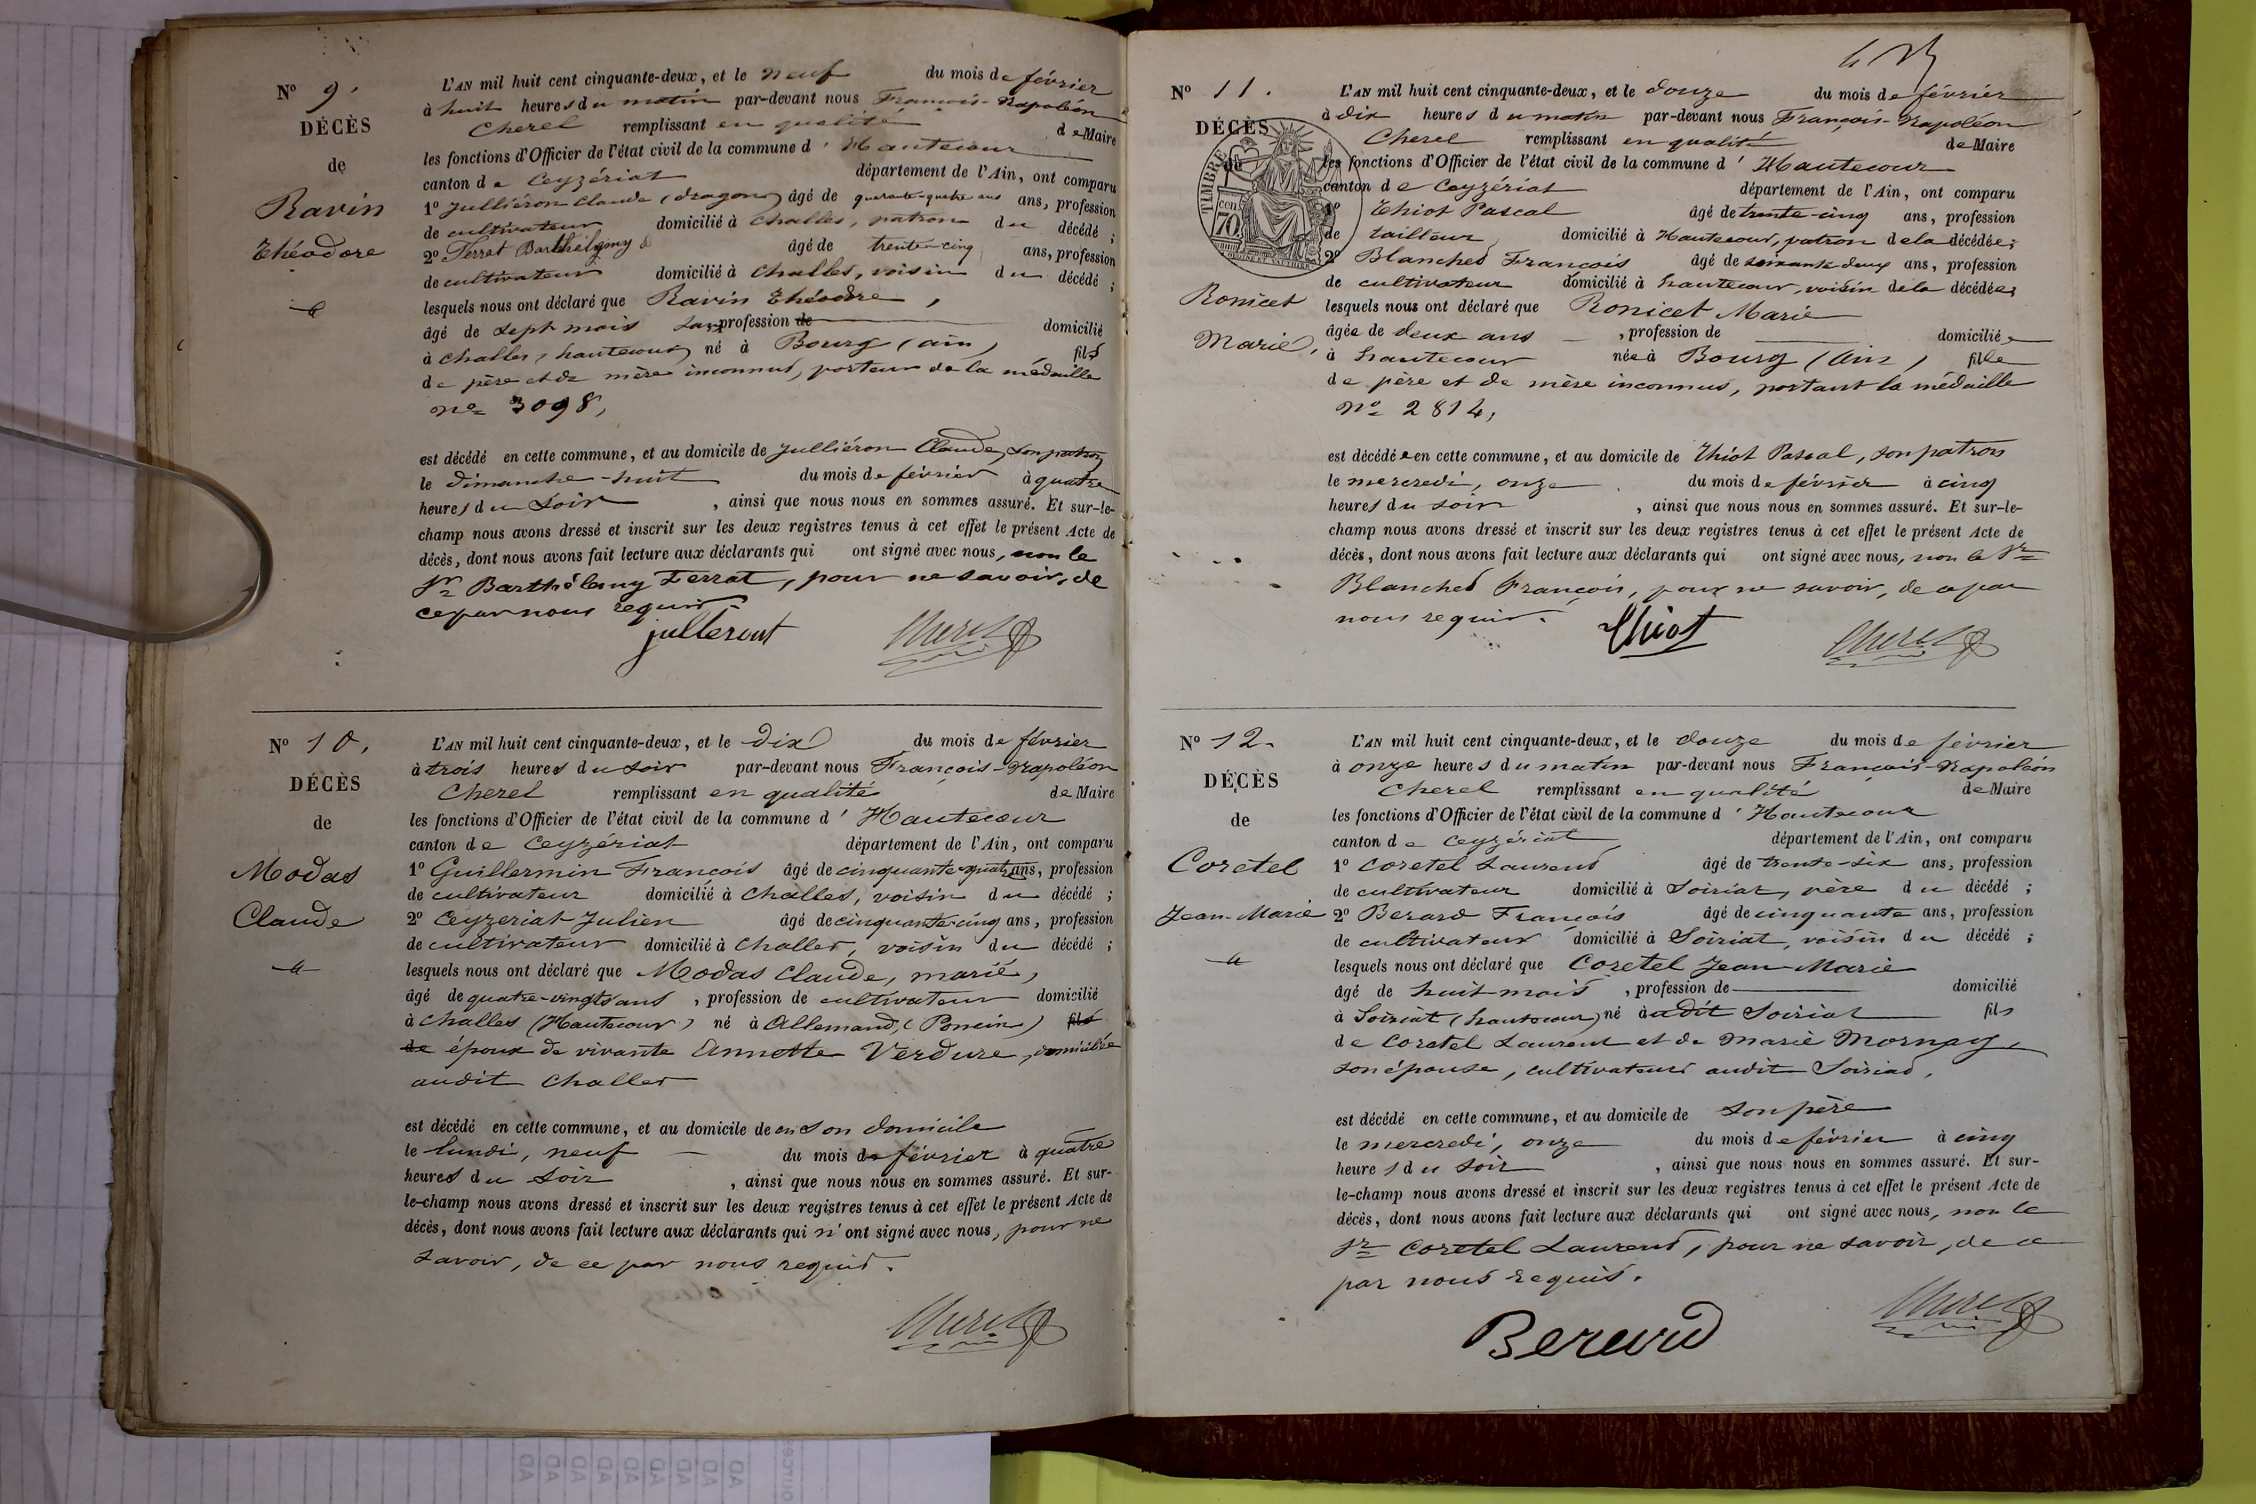 N° 9.
DÉCÈS
de
Ravin
Théodore
L'AN mil huit cent cinquante-deux, et le neuf du mois de février
à huit heures du matin par-devant nous François-Napoléon
Cherel remplissant en qualité de Maire
les fonctions d'Officier de l'état civil de la commune d'Hautecour
canton de Ceyzériat département de l'Ain, ont comparu
1° Julliéron Claude (dragon) âgé de quarante-quatre ans ans, profession
de cultivateur domicilié à Challes, patron du décédé ;
2° Ferrat Barthélemy âgé de trente-cinq ans, profession
de cultivateur domicilié à Challes, voisin du décédé ;
lesquels nous ont déclaré que Ravin Théodore,
âgé de sept mois sans profession de domicilié
à Challes, hautecour, né à Bourg (ain) fils
de père et de mère inconnus, porteur de la médaille
n° 3098,
est décédé en cette commune, et au domicile de Julliéron Claude, son patron
le dimanche-huit du mois de février à quatre
heures du Soir, ainsi que nous nous en sommes assuré. Et sur-le-
champ nous avons dressé et inscrit sur les deux registres tenus à cet effet le présent Acte de
décès, dont nous avons fait lecture aux déclarants qui ont signé avec nous, non le
Sr Barthélemy Ferrat, pour ne savoir, de
ce par nous requis.
julleront Cherel
N° 10.
DÉCÈS
de
Modas
Claude
L'AN mil huit cent cinquante-deux, et le dix du mois de février
à trois heures du soir par-devant nous François-Napoléon
Cherel remplissant en qualité de Maire
les fonctions d'Officier de l'état civil de la commune d'Hautecour
canton de Ceyzériat département de l'Ain, ont comparu
1° Guillermin François âgé de cinquante-quatre ans, profession
de cultivateur domicilié à Challes, voisin du décédé ;
2° Ceyzeriat Julien âgé de cinquante-cinq ans, profession
de cultivateur domicilié à Challes, voisin du décédé ;
lesquels nous ont déclaré que Modas Claude, marié,
âgé de quatre-vingts ans, profession de cultivateur domicilié
à Challes (Hautecour) né à Allemand, (Poncin) fils
de époux de vivante Annette Verdure, domiciliée
audit Challes
est décédé en cette commune, et au domicile de en son domicile
le lundi, neuf du mois de février à quatre
heures du soir, ainsi que nous nous en sommes assuré. Et sur-
le-champ nous avons dressé et inscrit sur les deux registres tenus à cet effet le présent Acte de
décès, dont nous avons fait lecture aux déclarants qui n'ont signé avec nous, pour ne
savoir, de ce par nous requis.
Cherel
N° 11.
DÉCÈS
de
Ronicet
Marie,
TIMBRE
70
L'AN mil huit cent cinquante-deux, et le douze du mois de février
à dix heures du matin par-devant nous François-Napoléon
Cherel remplissant en qualité de Maire
les fonctions d'Officier de l'état civil de la commune d'Hautecour
canton de Ceyzériat département de l'Ain, ont comparu
1° Thiot Pascal âgé de trente-cinq ans, profession
de tailleur, domicilié à Hautecour, patron de la décédée ;
2° Blanched François âgé de soixante deux ans, profession
de cultivateur domicilié à hautecour, voisin de la décédée ;
lesquels nous ont déclaré que Ronicet Marie
âgée de deux ans, profession de domiciliée
à hautecour née à Bourg (Ain) fille
de père et de mère inconnus, portant la médaille
N° 2814,
est décédée en cette commune, et au domicile de Thiot Pascal, son patron
le mercredi, onze du mois de février à cinq
heures du soir, ainsi que nous nous en sommes assuré. Et sur-le-
champ nous avons dressé et inscrit sur les deux registres tenus à cet effet le présent Acte de
décès, dont nous avons fait lecture aux déclarants qui ont signé avec nous, non le Sr
Blanched François, pour ne savoir, de ce par
nous requis.
Thiot Cherel
N° 12.
DÉCÈS
de
Coretel
Jean-Marie
L'AN mil huit cent cinquante-deux, et le douze du mois de février
à onze heures du matin par-devant nous François-Napoléon
Cherel remplissant en qualité de Maire
les fonctions d'Officier de l'état civil de la commune d'Hautecour
canton de Ceyzériat, département de l'Ain, ont comparu
1° Coretel Laurent âgé de trente-six ans, profession
de cultivateur domicilié à Soiriat, père du décédé ;
2° Berard François âgé de cinquante ans, profession
de cultivateur domicilié à Soiriat, voisin du décédé ;
lesquels nous ont déclaré que Coretel Jean-Marie
âgé de huit mois, profession de domicilié
à Soiriat (hautecour) né à audit Soiriat fils
de Coretel Laurent et de Marie Mornay,
son épouse, cultivateurs audit Soiriat,
est décédé en cette commune, et au domicile de son père
le mercredi, onze du mois de février à cinq
heures du soir, ainsi que nous nous en sommes assuré. Et sur-
le-champ nous avons dressé et inscrit sur les deux registres tenus à cet effet le présent Acte de
décès, dont nous avons fait lecture aux déclarants qui ont signé avec nous, non le
Sr Coretel Laurent, pour ne savoir, de ce
par nous requis.
Cherel
Berard